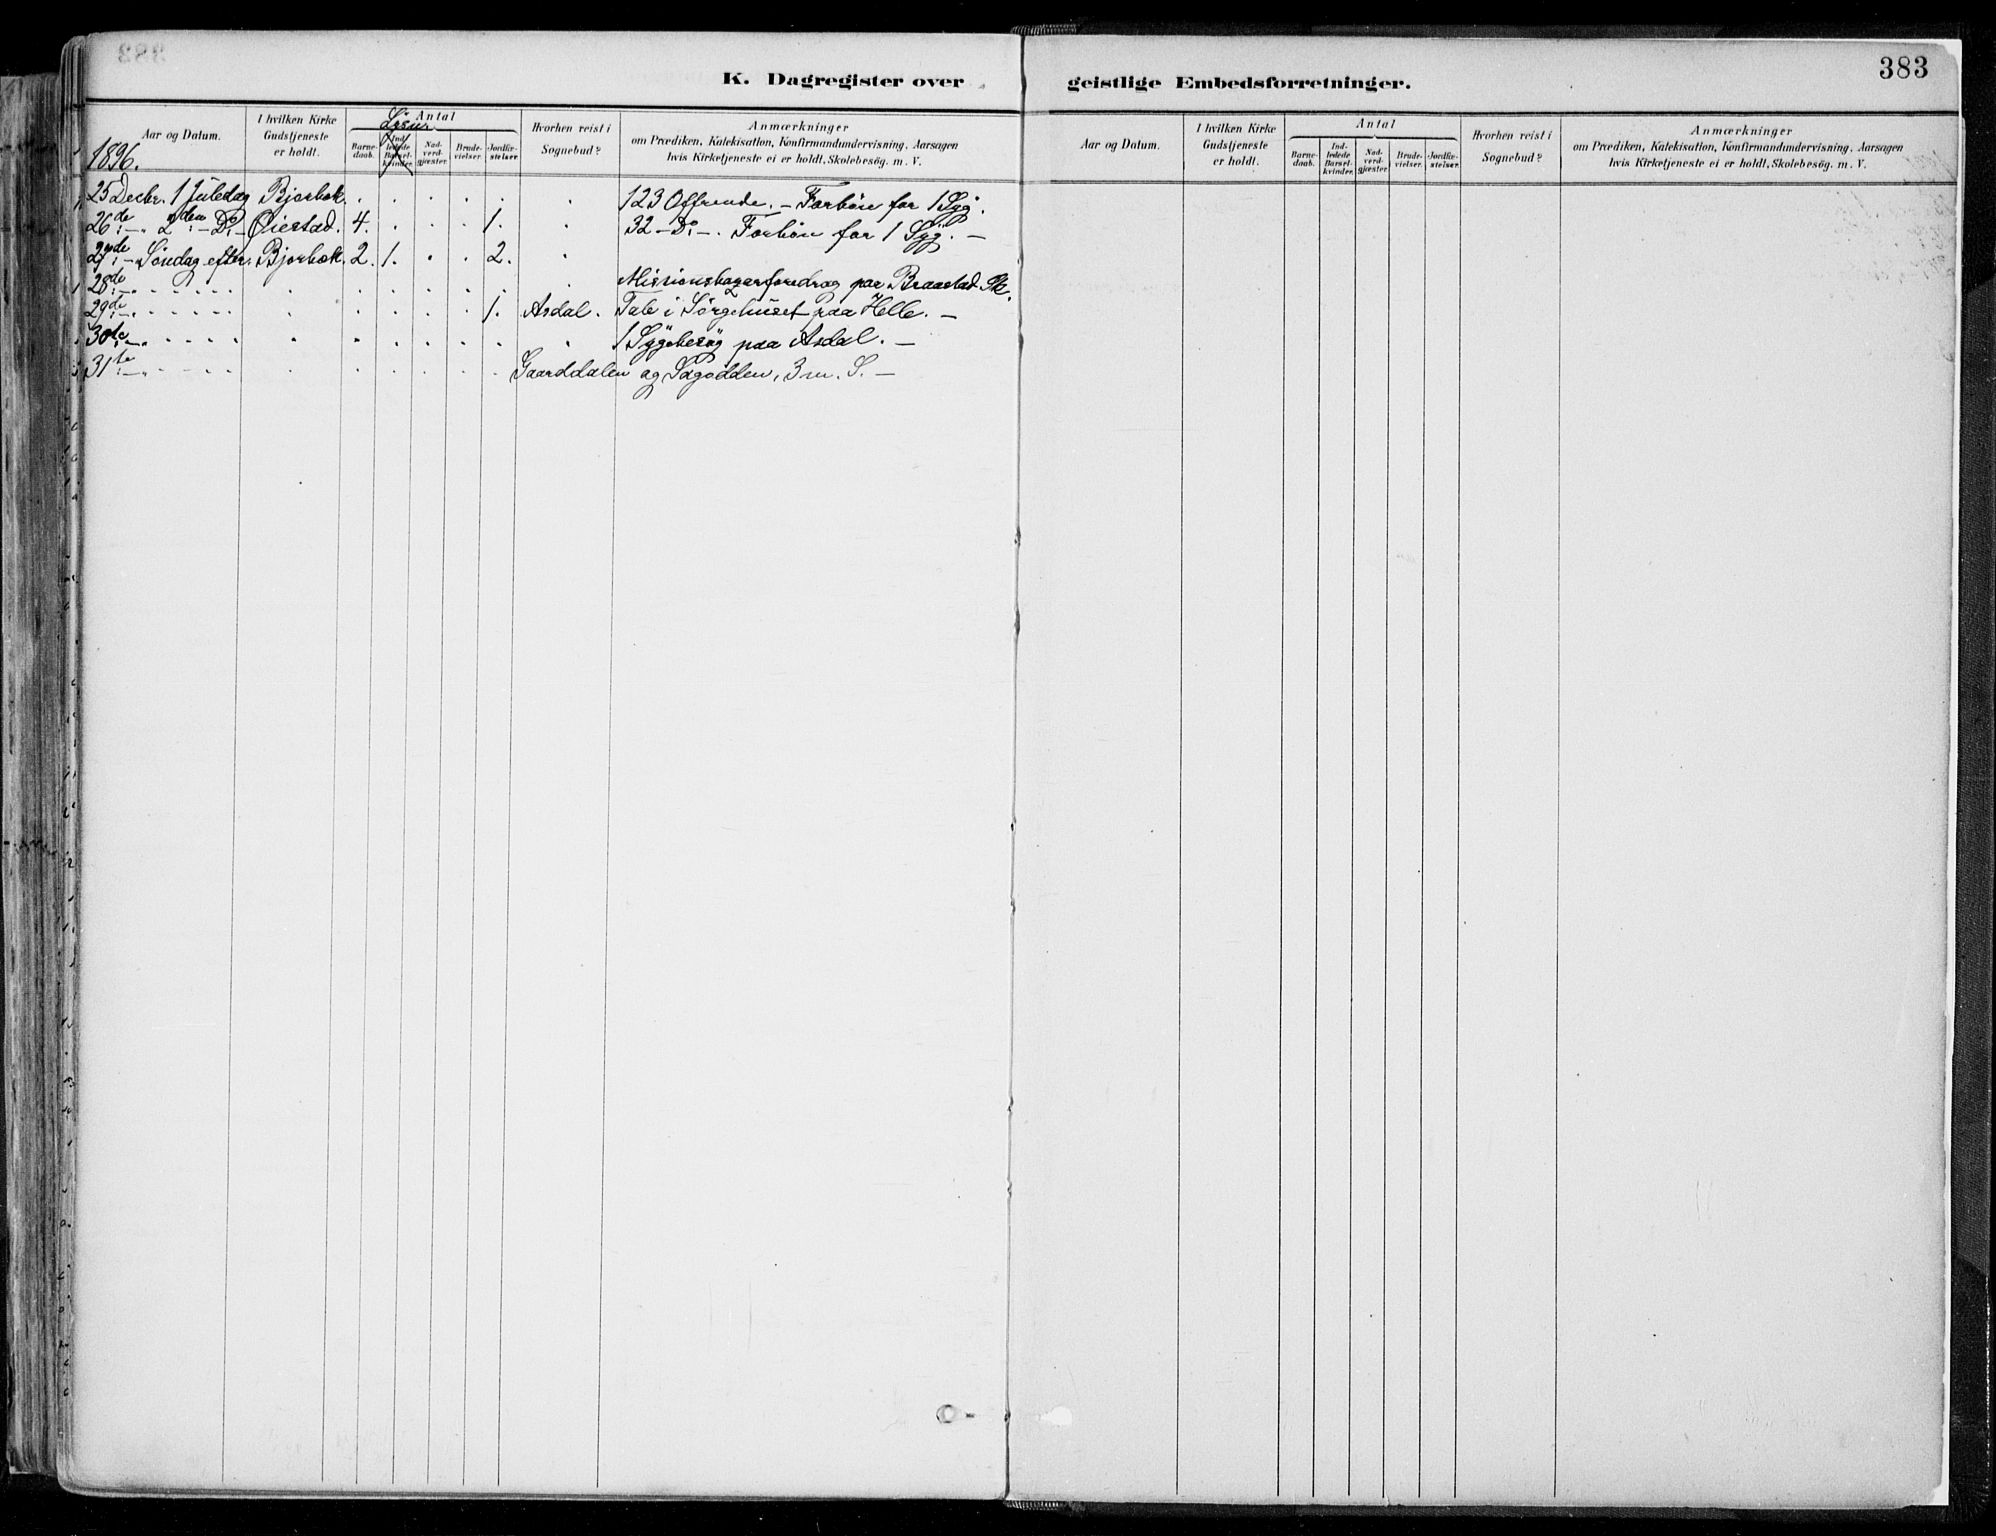 383
K. Dagregister over geistlige Embedsforretninger.
Aar og Datum. | I hvilken Kirke Gudstjeneste er holdt. | Antal | Barne-daab. | Ind-ledede Barsel-kvinder. | Nad-verd-gjæster. | Brude-vielser. | Jordfæ-stelser. | Hvorhen reist i Sognebud? | Anmærkninger om Prædiken, Katekisation, Konfirmandundervisning, Aarsagen hvis Kirketjeneste ei er holdt, Skolebesög. m. V.
1896.
25 Decbr. 1 Juledag | Bjorbæk. | . | . | . | . | . | . | 123 Offrende. – Forbön for 1 Syg.
26de:– „ 2den:– Do.– | Øiestad. | 4. | . | . | . | 1. | . | 32 – Do. –. Forbön for 1 Syg. –
27de:– „ Söndag efter. | Bjorbæk. | 2. | 1. | . | . | 2. | .
28de:– „ | . | . | . | . | . | . | . | Missionsbazarforedrag paa Braastad Sk.
29de:– „ | . | . | . | . | . | 1. | Asdal. | Tale i Sörgehuset paa Helle. –
30te:– „ | . | . | . | . | . | . | . | 1 Sygebesøg paa Asdal. –
31te:– „ | . | . | . | . | . | . | Gaarddalen og Sagodden, 3 m. S. –
Aar og Datum. | I hvilken Kirke Gudstjeneste er holdt. | Antal | Barne-daab. | Ind-ledede Barsel-kvinder. | Nad-verd-gjæster. | Brude-vielser. | Jordfæ-stelser. | Hvorhen reist i Sognebud? | Anmærkninger om Prædiken, Katekisation, Konfirmandundervisning, Aarsagen hvis Kirketjeneste ei er holdt, Skolebesög. m. V.